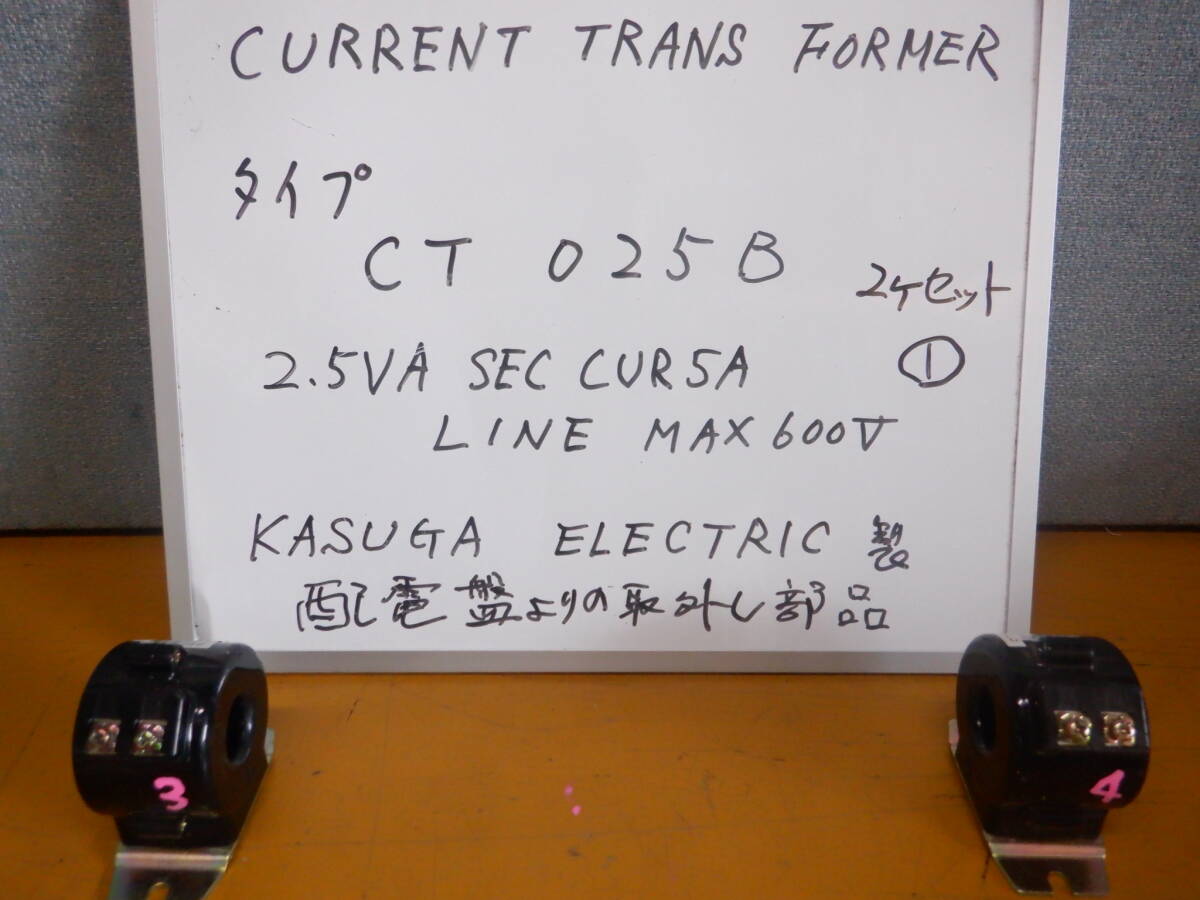 CURRENT TRANS FORMER
タイプ
CT 025B
2ケセット
①
2.5VA SEC CUR5A
LINE MAX 600V
KASUGA ELECTRIC 製
配電盤よりの取外し部品
3
4